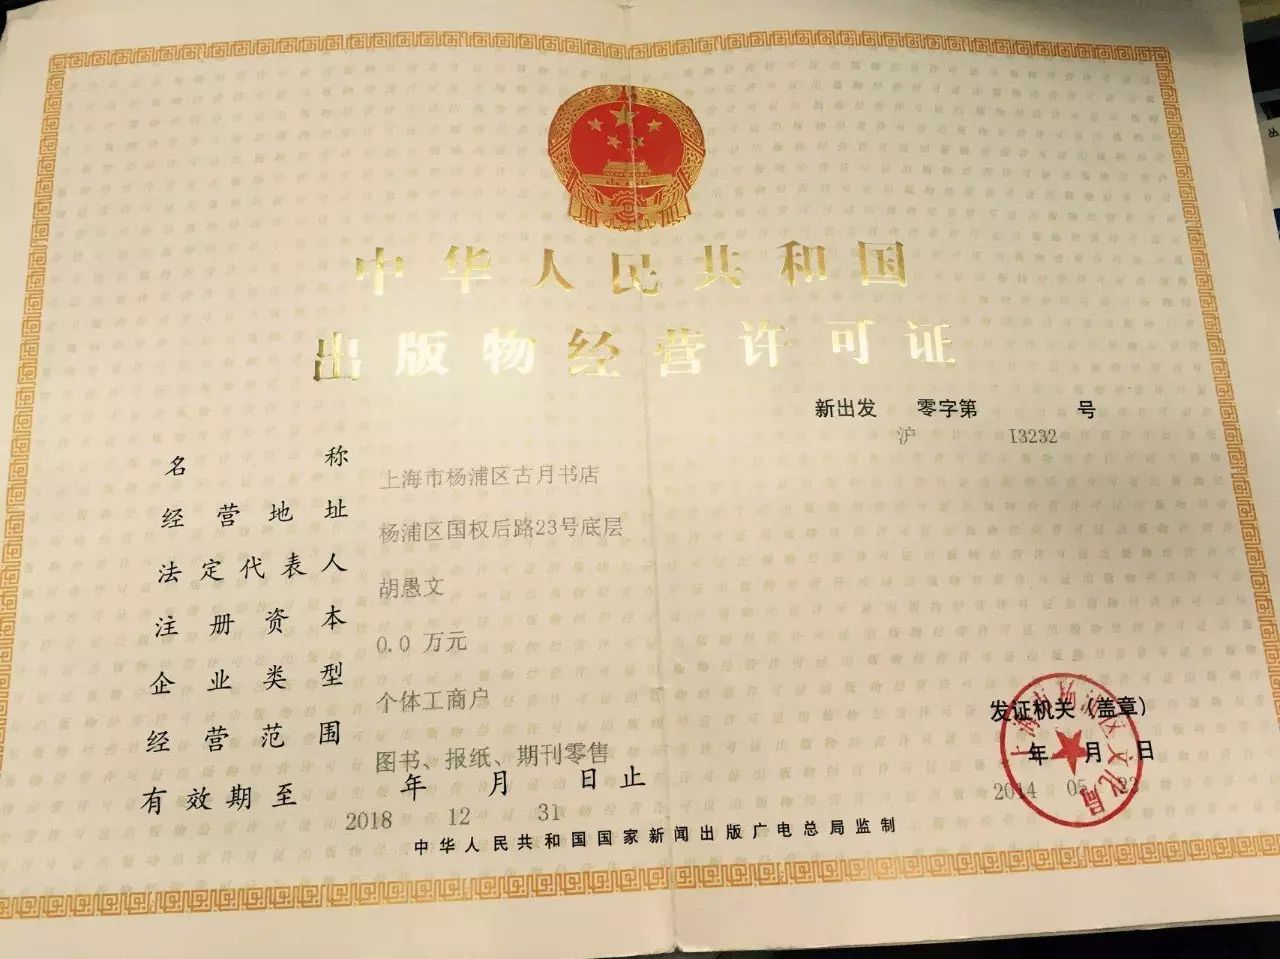 中华人民共和国
出版物经营许可证
新出发 零字第 号
沪 I3232
名称 上海市杨浦区古月书店
经营地址 杨浦区国权后路23号底层
法定代表人 胡愚文
注册资本 0.0 万元
企业类型 个体工商户
经营范围 图书、报纸、期刊零售
有效期至 年 月 日止
2018 12 31
发证机关（盖章）
年 月 日
2014 05
中华人民共和国国家新闻出版广电总局监制